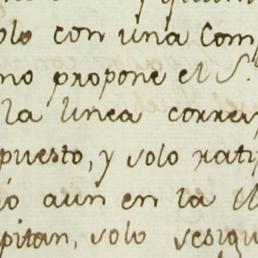 olo con una Com
mo propone el S.r
la linea corres
puesto, y solo rati
ó aun en la
pitan, solo